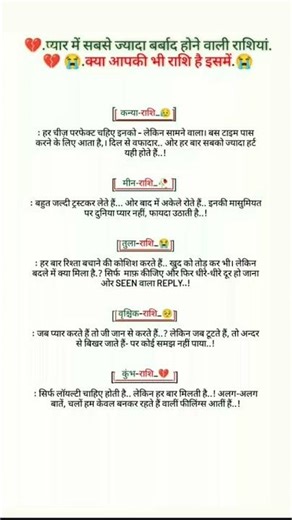 💔.प्यार में सबसे ज्यादा बर्बाद होने वाली राशियां.
💔 😭.क्या आपकी भी राशि है इसमें.😭
[ कन्या-राशि_🥺 ]
: हर चीज़ परफेक्ट चहिए इनको - लेकिन सामने वाला। बस टाइम पास
करने के लिए आता है,। दिल से वफादार.. ओर हर बार सबको ज्यादा हर्ट
यही होते हैं..!
[ मीन-राशि_🥀 ]
: बहुत जल्दी ट्रस्टकर लेते हैं... ओर बाद में अकेले रोते हैं.. इनकी मासुमियत
पर दुनिया प्यार नहीं, फायदा उठाती है..!
[ तुला-राशि_😭 ]
: हर बार रिश्ता बचाने की कोशिश करते हैं.. खुद को तोड़ कर भी। लेकिन
बदले में क्या मिला है.? सिर्फ माफ़ कीजिए और फिर धीरे-धीरे दूर हो जाना
ओर SEEN वाला REPLY..!
[ वृश्चिक-राशि_🥺 ]
: जब प्यार करते हैं तो जी जान से करते हैं..? लेकिन जब टूटते हैं, तो अन्दर
से बिखर जाते हैं- पर कोई समझ नहीं पाया..!
[ कुंभ-राशि_💔 ]
: सिर्फ लॉयल्टी चाहिए होती है.. लेकिन हर बार मिलती है..! अलग-अलग
बातें, चलों हम केवल बनकर रहते हैं वालीं फीलिंग्स आतीं हैं..!